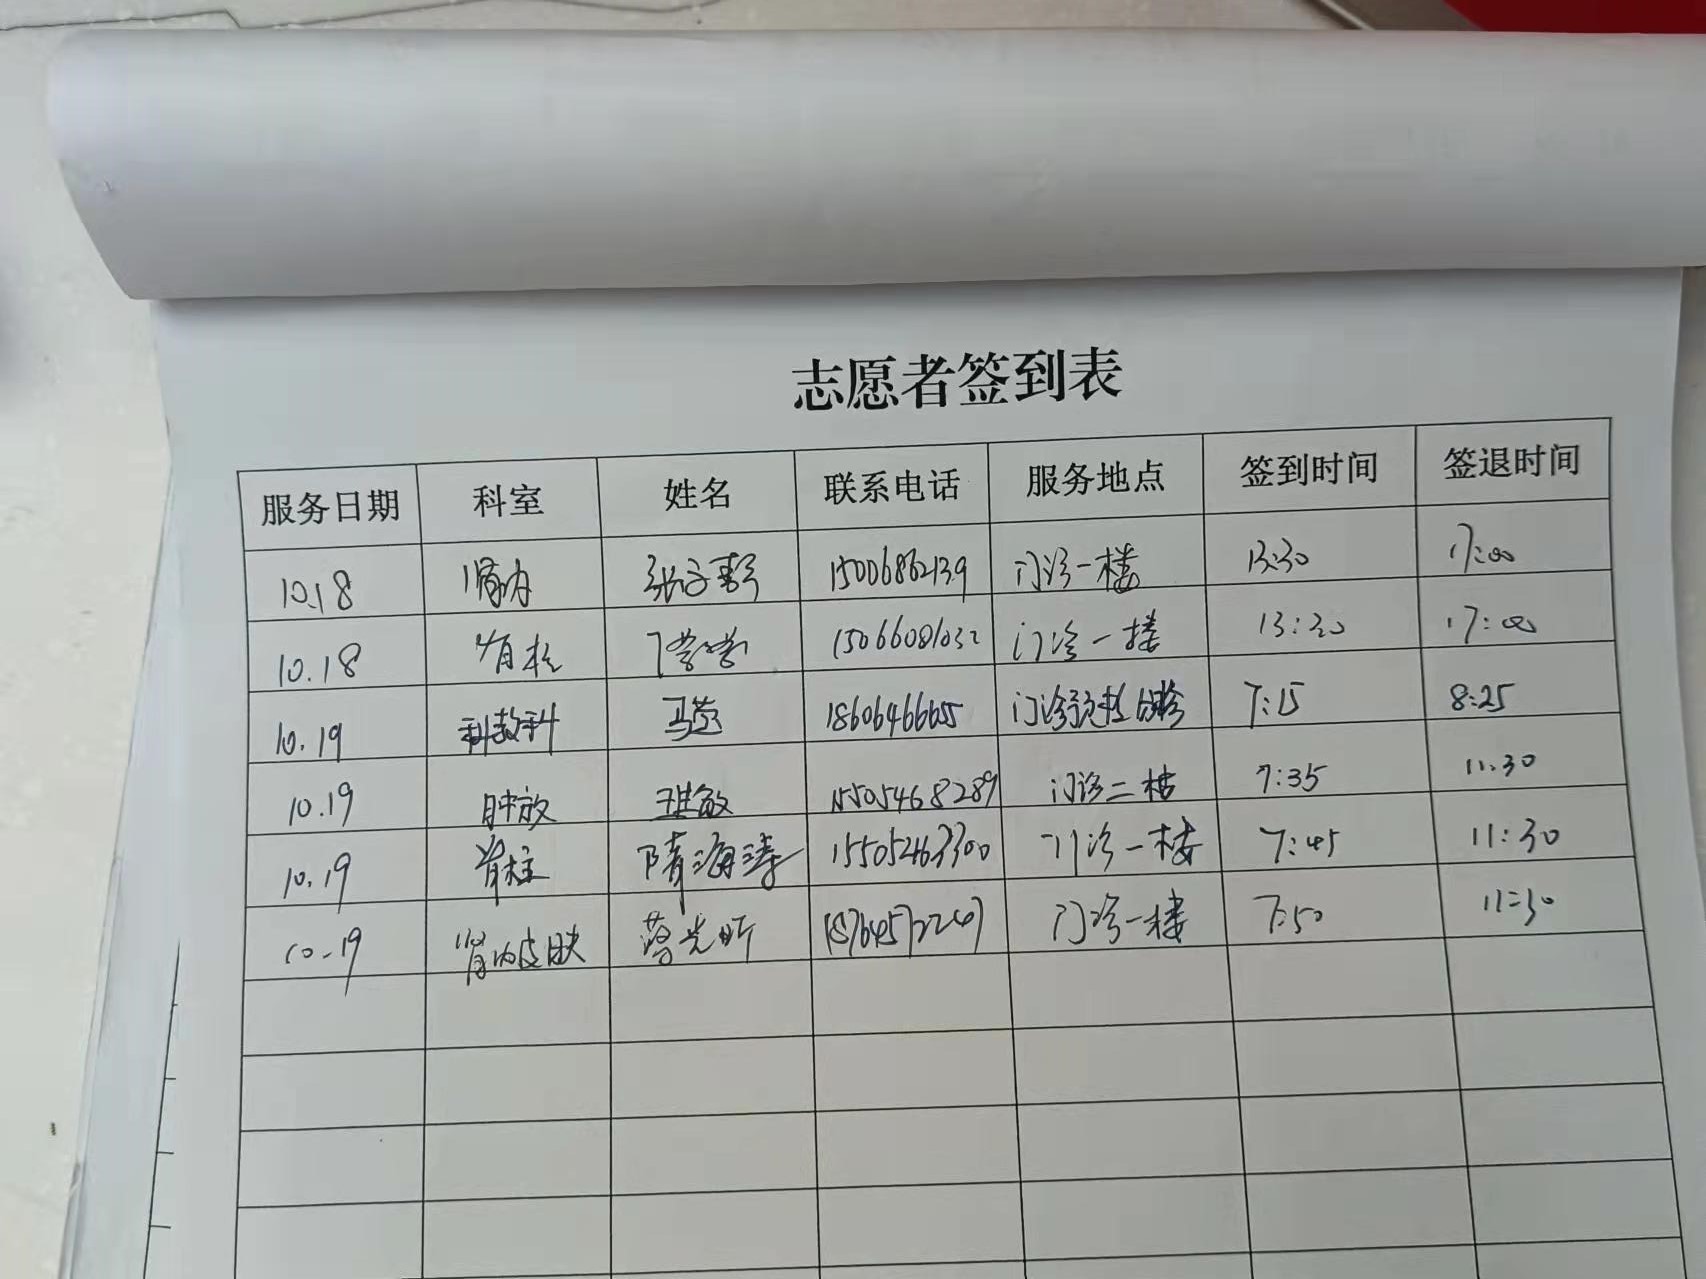 志愿者签到表
服务日期 科室 姓名 联系电话 服务地点 签到时间 签退时间
10.18 肾内 张子 15006862139 门诊一楼 13:30 17:00
10.18 脊柱 丁莹莹 15066081032 门诊一楼 13:30 17:00
10.19 科教科 马莹 18606466665 门诊预检分诊 7:15 8:25
10.19 肿放 敏 15505468289 门诊二楼 7:35 11:30
10.19 脊柱 隋海涛 15505463300 门诊一楼 7:45 11:30
10.19 肾内皮肤 蔡光昕 18764572247 门诊一楼 7:50 11:30